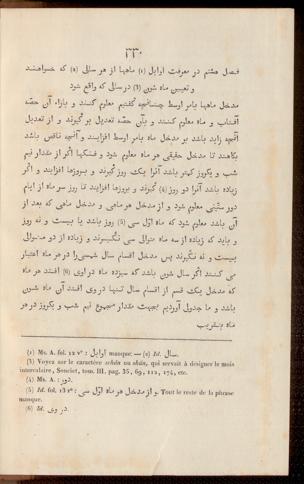 ٣٣٠
فصل هشتم در معرفت اوایل (1) ماهها از هر سالی (2) که خواهند
و تعیین ماه شون (3) در سالی که واقع شود
مدخل ماهها بامر اوسط چنانچه گفتیم معلوم کنند و بازاء آن حصّه
آفتاب و ماه معلوم کنند و بآن حصّه تعدیل بر گیرند و از تعدیل
آنچه زاید باشد بر مدخل ماه بامر اوسط افزایند و آنچه ناقص باشد
بکاهند تا مدخل حقیقی هر ماه معلوم شود و فنکها اگر از مقدار نیم
شب و یکروز کمتر باشد آنرا یک روز گیرند و بروزها افزایند و اگر
زیاده باشد آنرا دو روز (4) گیرند و بروزها افزایند تا روز سر ماه از ایام
دور ستّینی معلوم شود و از مدخل هر ماهی و مدخل ماهی که بعد از
آن باشد معلوم شود که ماه اوّل سی (5) روز باشد یا بیست و نه روز
و باید که زیاده از سه ماه متوالی سی نگیرند و زیاده از دو متوالی
بیست و نه نگیرند پس مدخل اقسام سال شمسی را در هر ماه اعتبار
می کنند اگر سال شون باشد که سیزده ماه در اوی (6) افتد هر ماه
که مدخل یک قسم از اقسام سال تنها در وی افتد آن ماه شون
باشد و ما جدولی آوردیم بجهت مقدار مجموع نیم شب و یکروز در هر
ماه بتقریب
(1) Ms. A. fol. 12 v° : اوایل manque. — (2) Id. سال.
(3) Voyez sur le caractère schún ou shún, qui servait à désigner le mois
intercalaire, Souciet, tom. III. pag. 35, 69, 112, 174, etc.
(4) Ms. A. : دور.
(5) Id. fol. 13 r° : و از مدخل هر ماه اوّل سی. Tout le reste de la phrase
manque.
(6) Id. در وی.